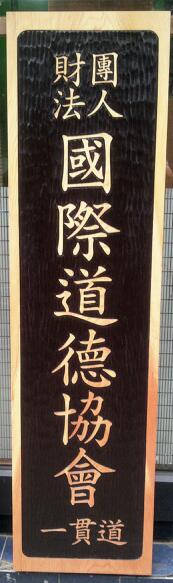 財團
法人
國際道德協會
一貫道